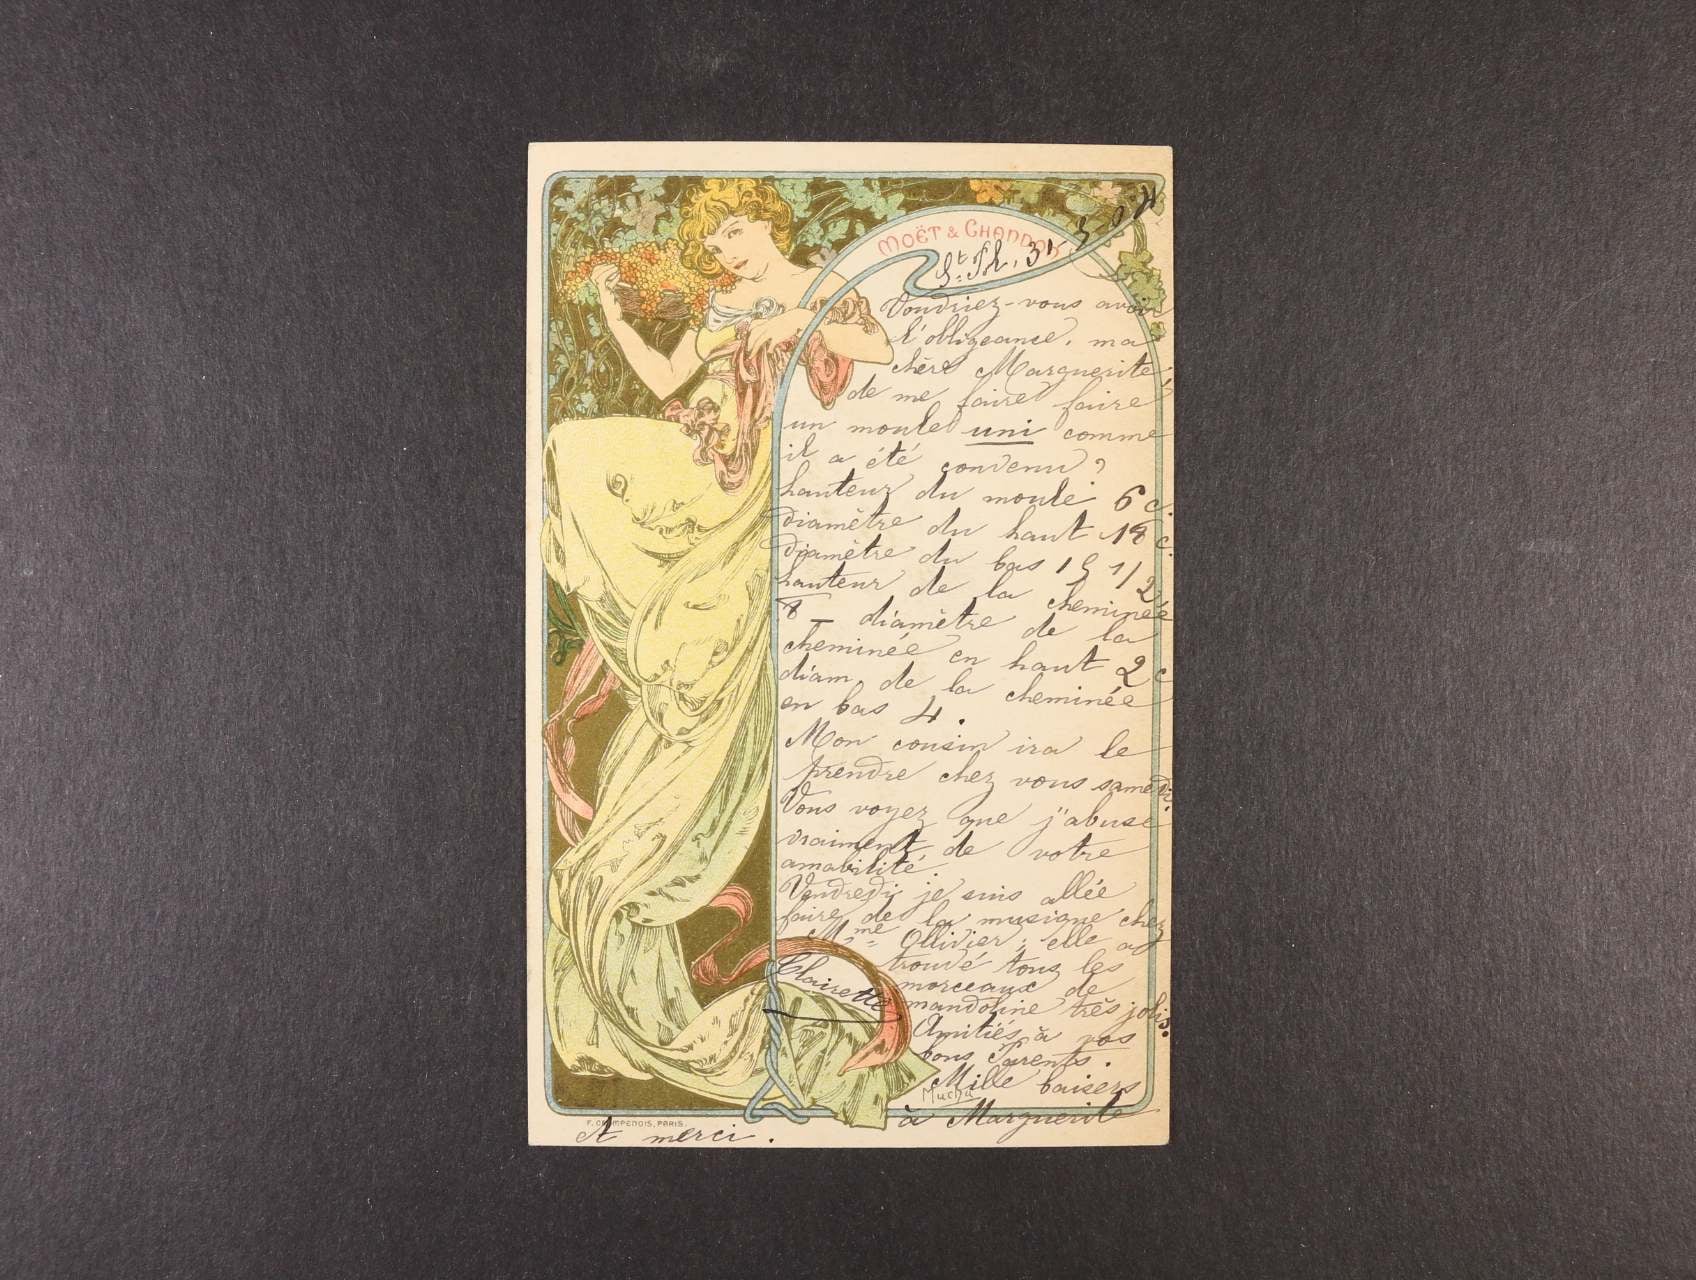 MOËT & CHANDON
St. Ph, 31 3 04
Voudriez-vous avoir
l'obligeance, ma
chère Marguerite,
de me faire faire
un moule uni comme
il a été convenu ?
hauteur du moule 6 c.
diamètre du haut 18 c.
diamètre du bas 15 1/2
hauteur de la cheminée
8 _ diamètre de la
cheminée en haut 2 c
diam. de la cheminée
en bas 4.
Mon cousin ira le
prendre chez vous samedi.
Vous voyez que j'abuse
vraiment de votre
amabilité.
Vendredi je suis allée
faire de la musique chez
Mme Ollivier ; elle a
trouvé tous les
morceaux de
mandoline très jolis.
Amitiés à vos
bons Parents.
Mille baisers
à Marguerite
Clairette
Mucha
F. CHAMPENOIS, PARIS.
et merci.